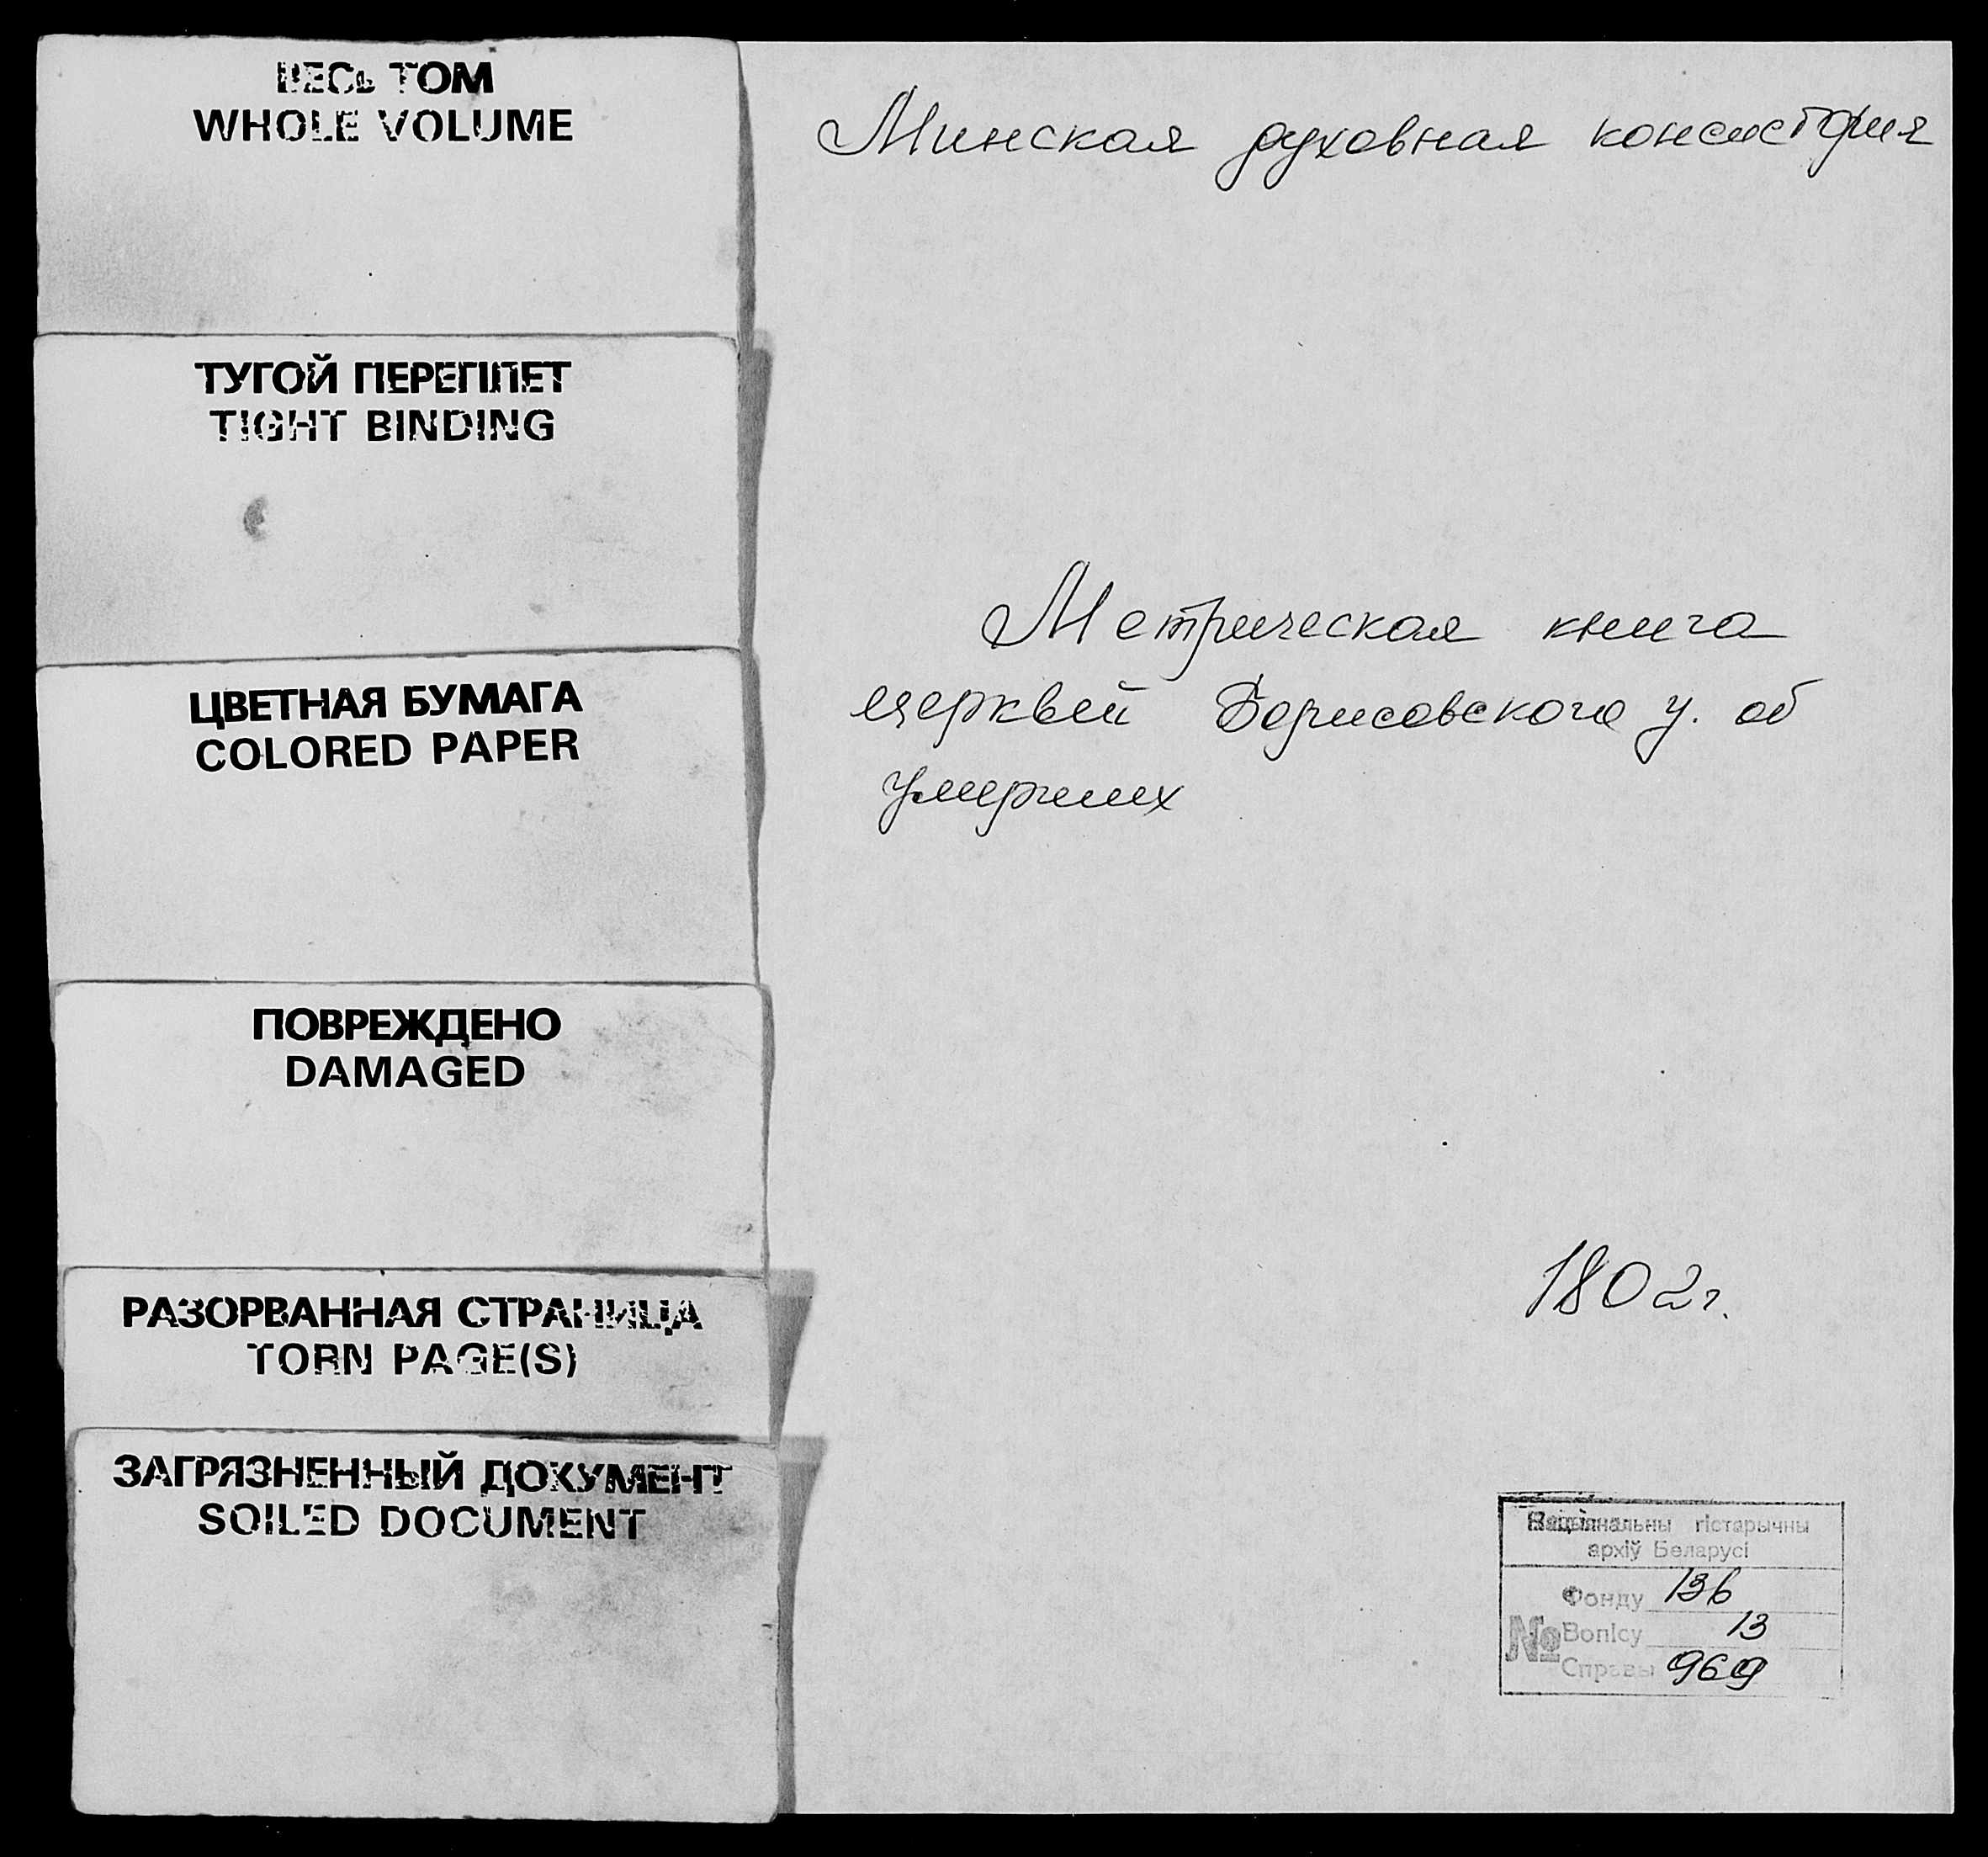 ВЕСЬ ТОМ
WHOLE VOLUME
ТУГОЙ ПЕРЕПЛЕТ
TIGHT BINDING
ЦВЕТНАЯ БУМАГА
COLORED PAPER
ПОВРЕЖДЕНО
DAMAGED
РАЗОРВАННАЯ СТРАНИЦА
TORN PAGE(S)
ЗАГРЯЗНЕННЫЙ ДОКУМЕНТ
SOILED DOCUMENT
Минская духовная консистория
Метрическая книга
церквей Борисовского у. об
умерших
1802г.
Нацыянальны гістарычны
архіў Беларусі
Фонду 136
№ Вопісу 13
Справы 969